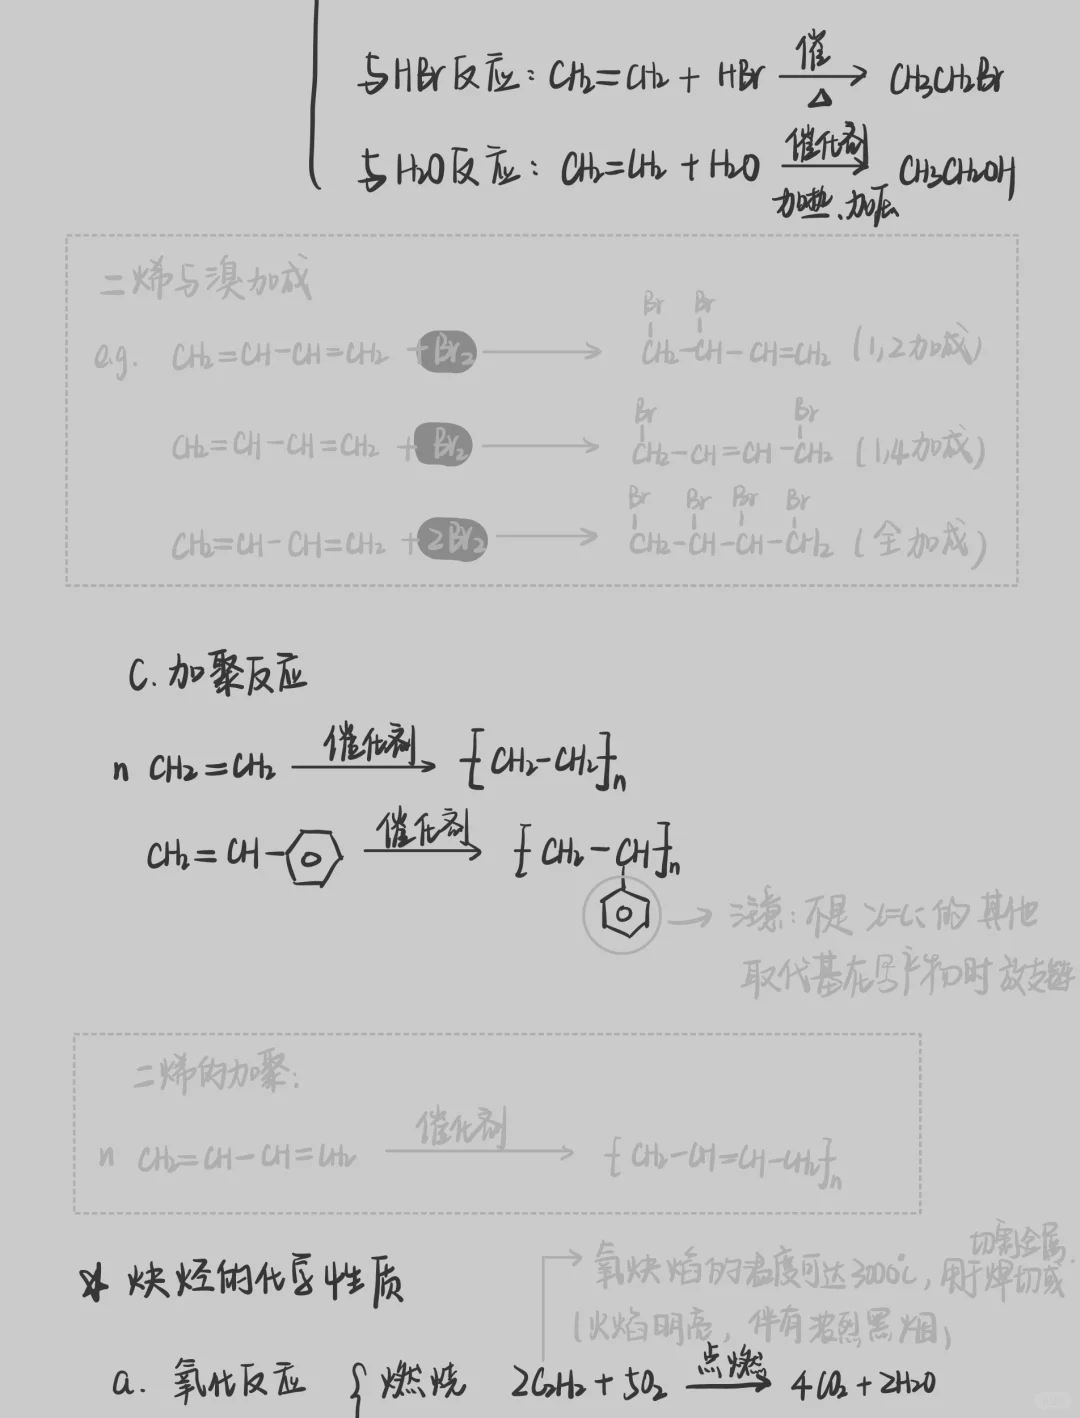 与HBr反应：CH2=CH2 + HBr 催 △ → CH3CH2Br
与H2O反应：CH2=CH2 + H2O 催化剂 加热、加压 → CH3CH2OH
二烯与溴加成
Br Br
e.g. CH2=CH-CH=CH2 + Br2 → CH2-CH-CH=CH2 (1,2加成)
Br Br
CH2=CH-CH=CH2 + Br2 → CH2-CH=CH-CH2 (1,4加成)
Br Br Br Br
CH2=CH-CH=CH2 + 2Br2 → CH2-CH-CH-CH2 (全加成)
C. 加聚反应
n CH2=CH2 催化剂 → [CH2-CH2]n
CH2=CH- 催化剂 → [CH2-CH]n
→ 注意：不是 C=C 的其他
取代基在写产物时放支链
二烯的加聚：
n CH2=CH-CH=CH2 催化剂 → [CH2-CH=CH-CH2]n
切割金属
炔烃的化学性质
→ 氧炔焰的温度可达3000℃，用于焊切或
(火焰明亮，伴有浓烈黑烟)
a. 氧化反应 { 燃烧 2C2H2 + 5O2 点燃 → 4CO2 + 2H2O